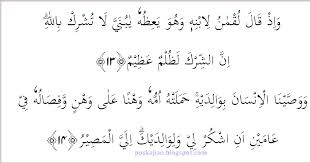 وَاِذْ قَالَ لُقْمٰنُ لِابْنِهٖ وَهُوَ يَعِظُهٗ يٰبُنَيَّ لَا تُشْرِكْ بِاللّٰهِ ۗ
اِنَّ الشِّرْكَ لَظُلْمٌ عَظِيْمٌ ﴿١٣﴾
وَوَصَّيْنَا الْاِنْسَانَ بِوَالِدَيْهِۚ حَمَلَتْهُ اُمُّهٗ وَهْنًا عَلٰى وَهْنٍ وَّفِصَالُهٗ فِيْ
عَامَيْنِ اَنِ اشْكُرْ لِيْ وَلِوَالِدَيْكَۗ اِلَيَّ الْمَصِيْرُ ﴿١٤﴾